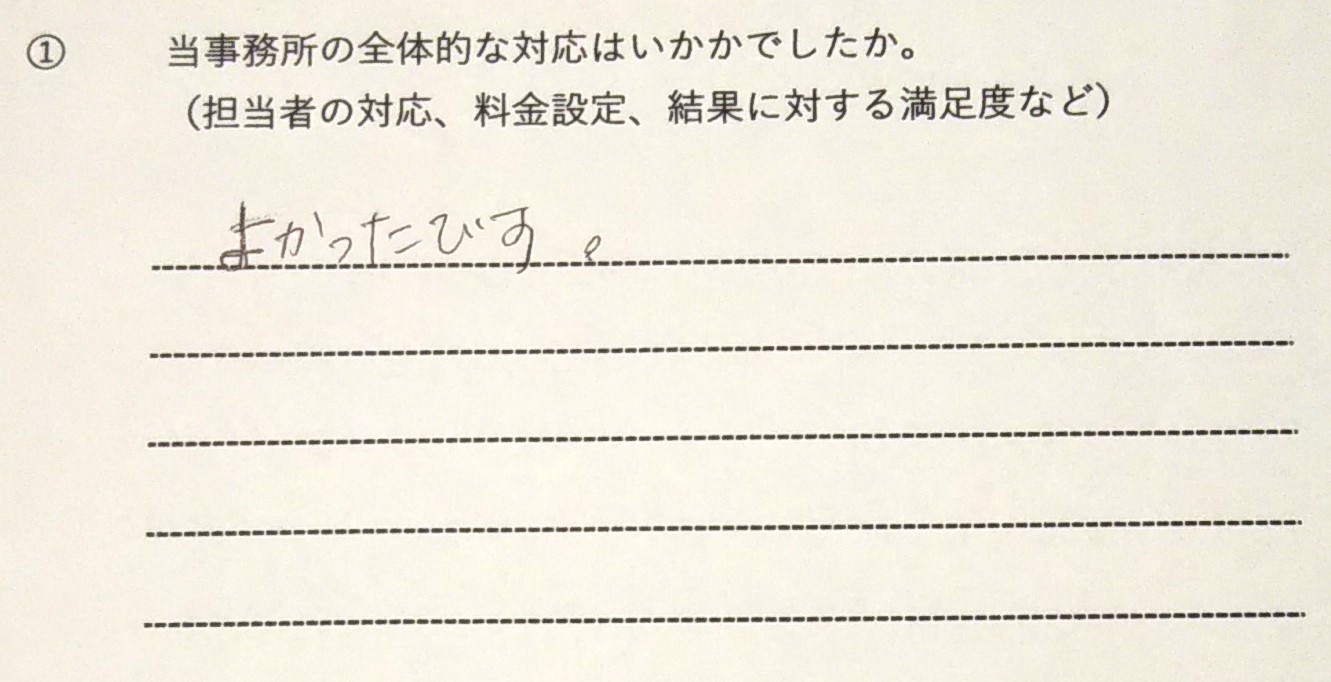 ① 当事務所の全体的な対応はいかがでしたか。
（担当者の対応、料金設定、結果に対する満足度など）
よかったです。